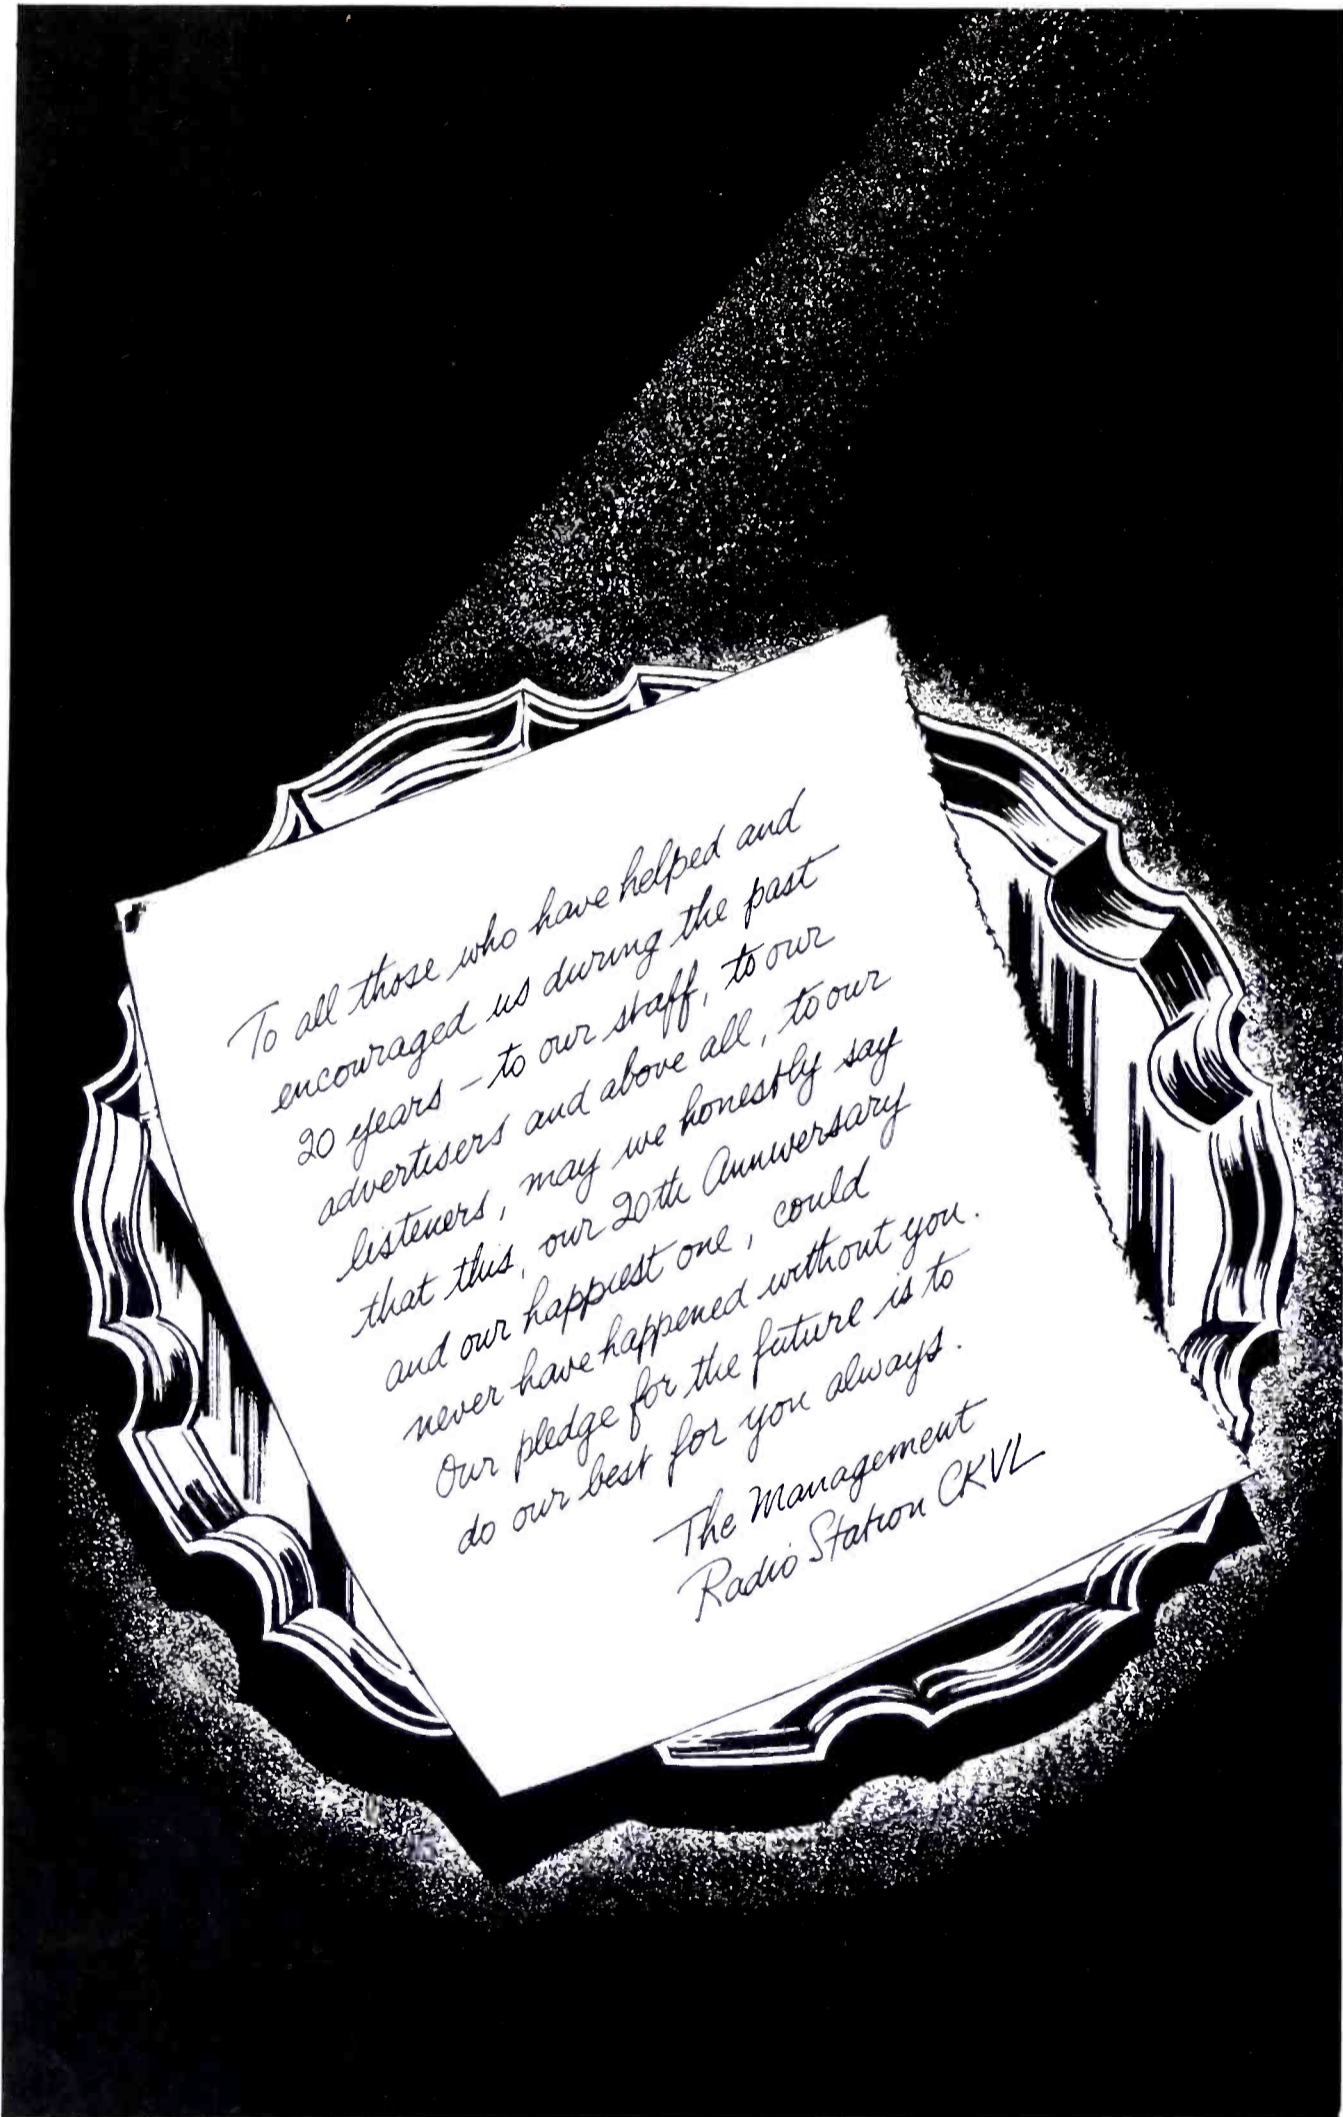 To all those who have helped and
encouraged us during the past
20 years – to our staff, to our
advertisers and above all, to our
listeners, may we honestly say
that this, our 20th Anniversary
and our happiest one, could
never have happened without you.
Our pledge for the future is to
do our best for you always.
The Management
Radio Station CKVL